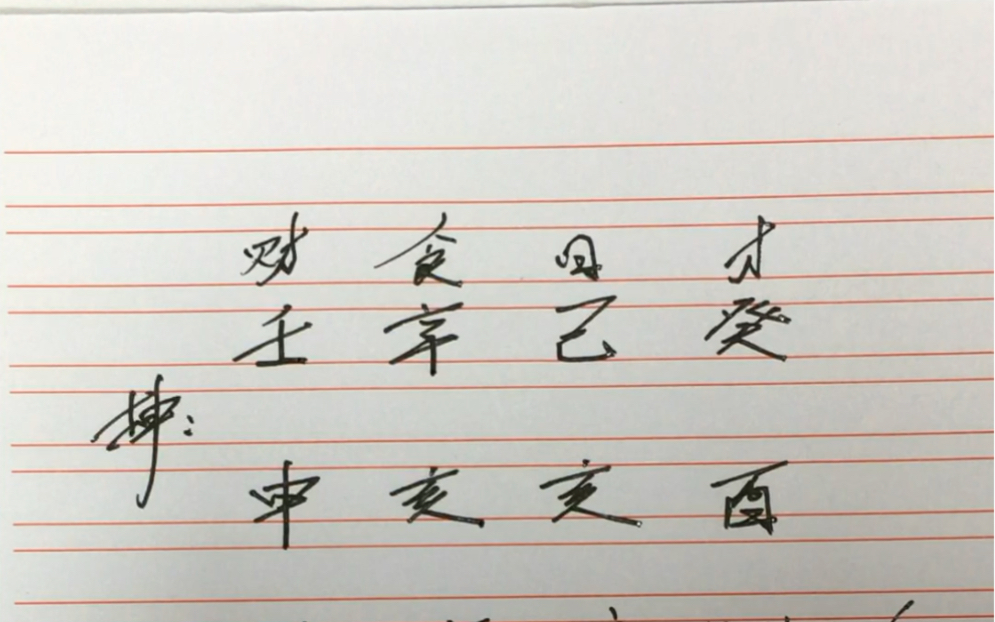 财 食 日 才
壬 辛 己 癸
坤:
申 亥 亥 酉